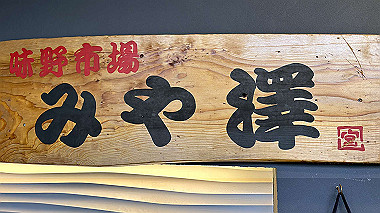 味野市場
みや澤
宮